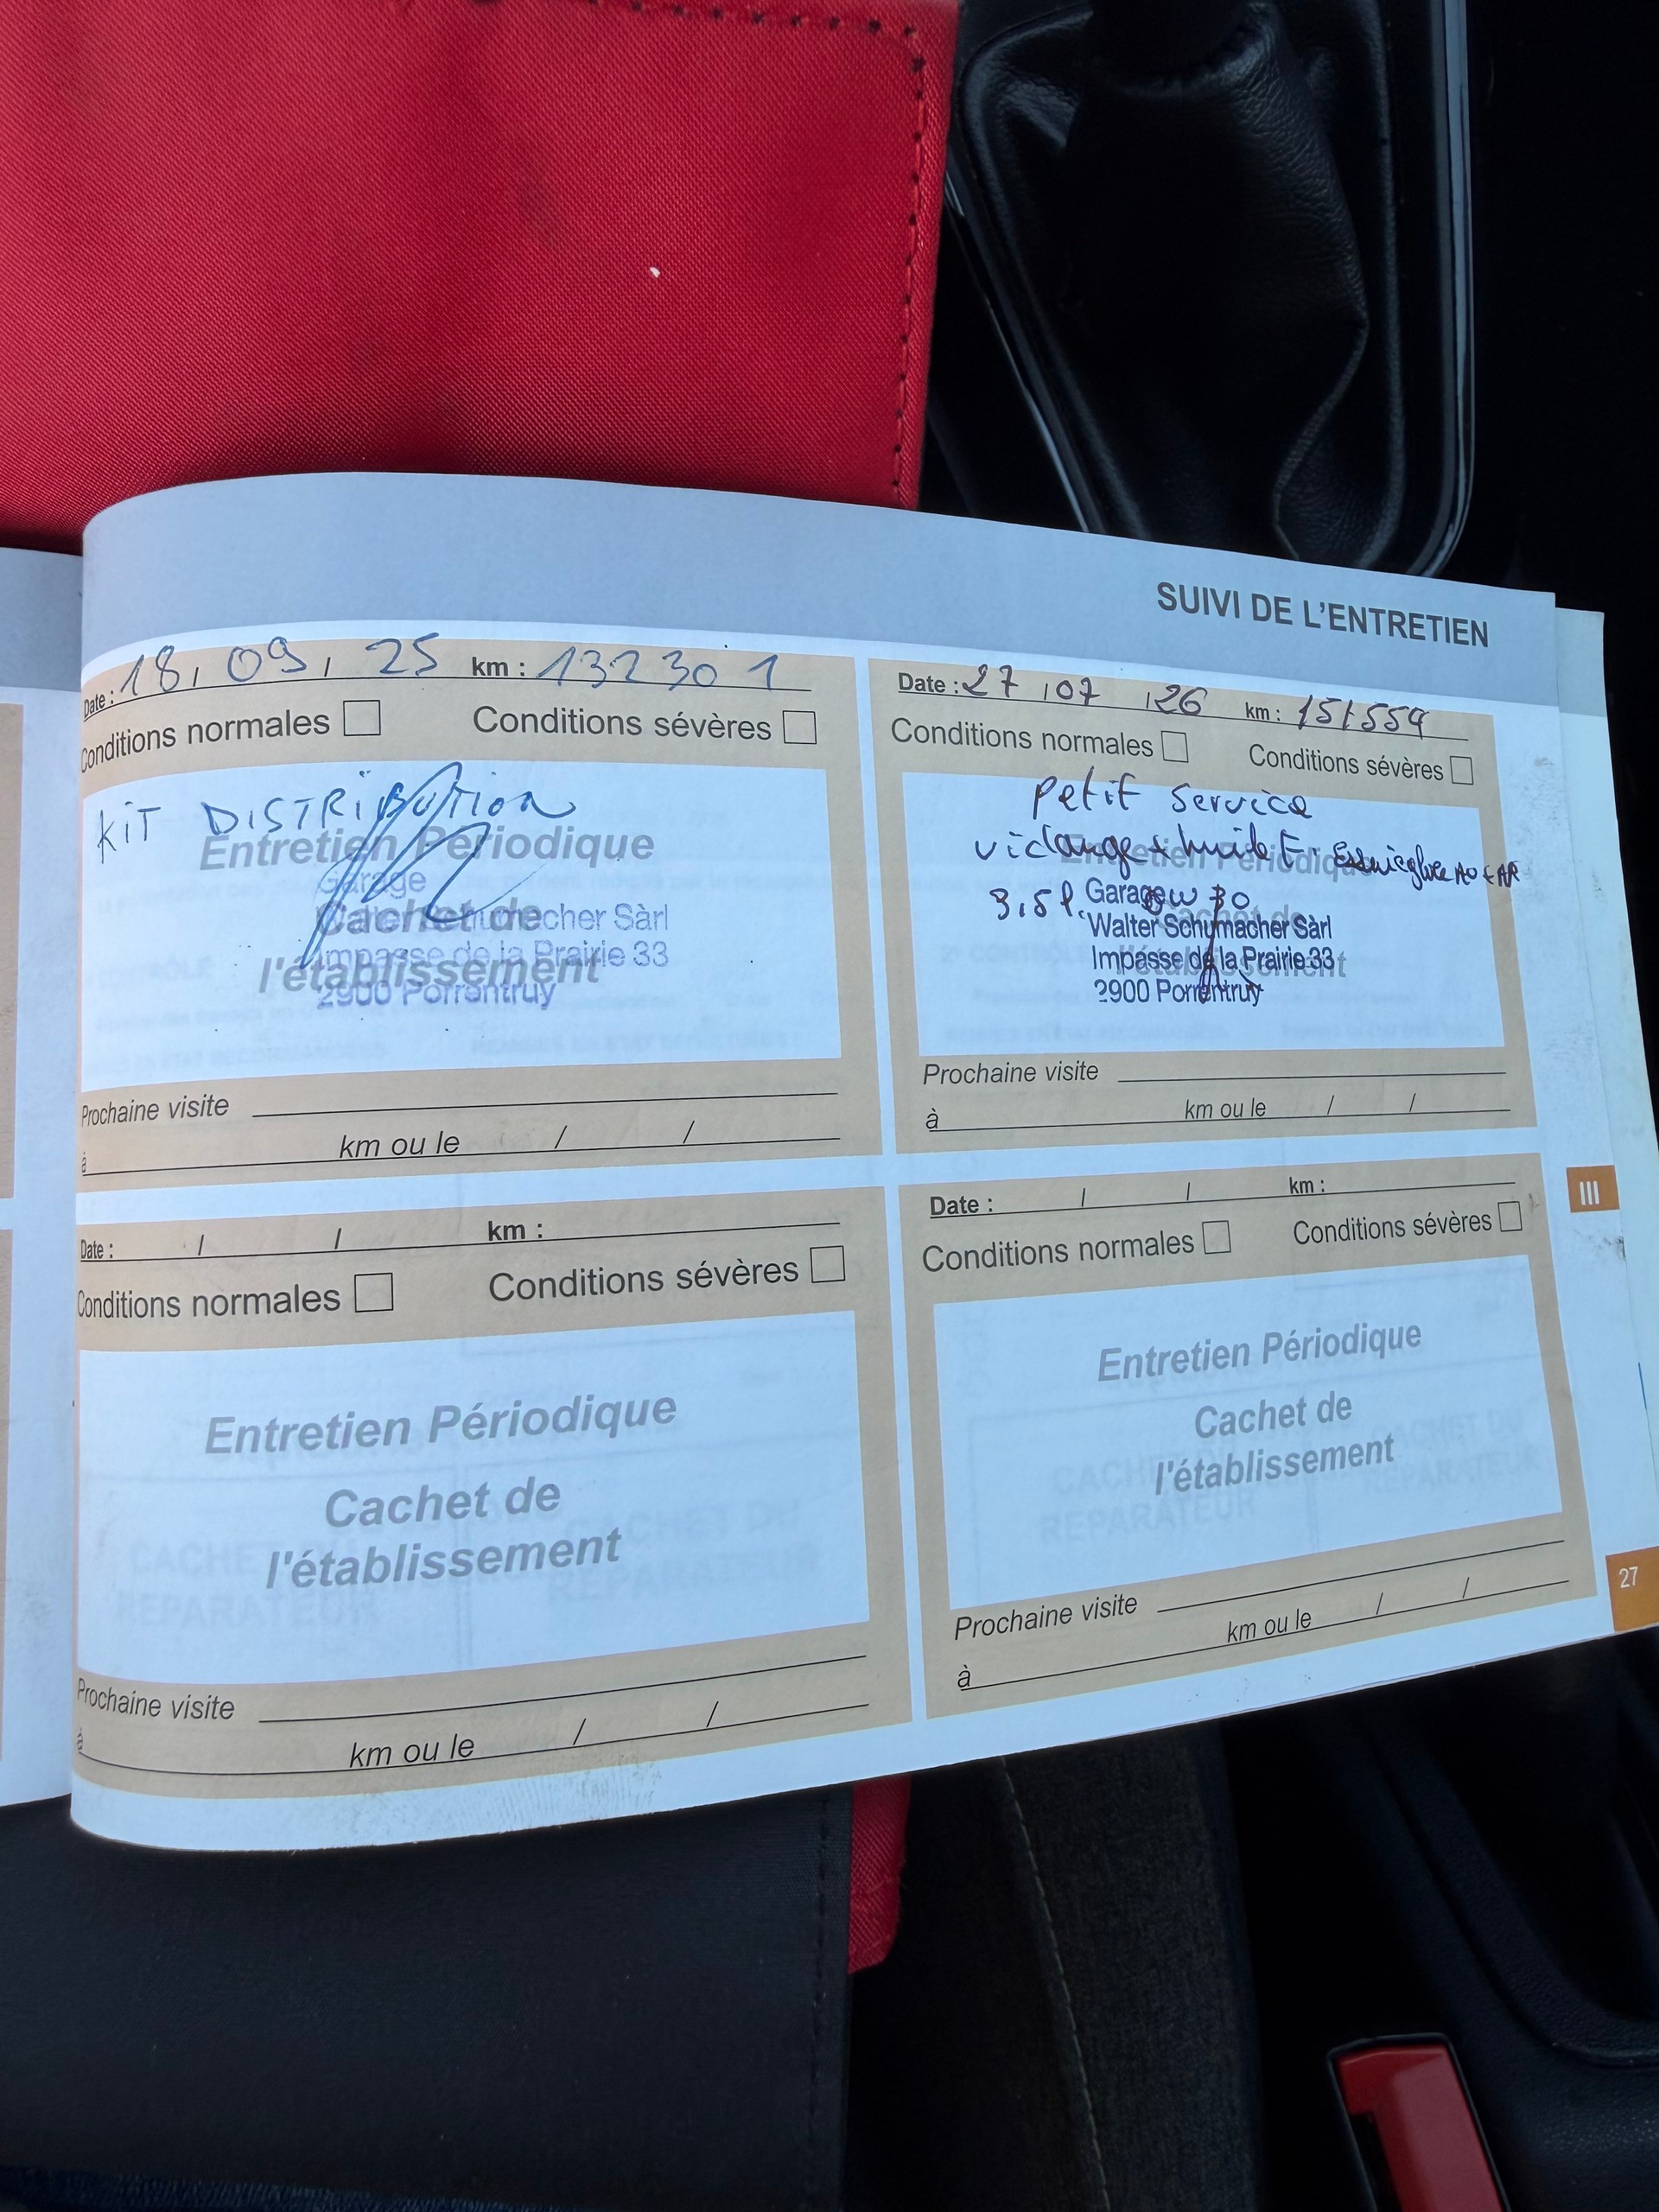 SUIVI DE L'ENTRETIEN
Date : 18, 09, 25 km : 132301
Conditions normales Conditions sévères
KIT DISTRIBUTION
Entretien Périodique
Garage
Cachet de
Walter Schumacher Sàrl
Impasse de la Prairie 33
l'établissement
2900 Porrentruy
Prochaine visite
à km ou le / /
Date : 27 / 07 / 26 km : 151559
Conditions normales Conditions sévères
Petit Service
vidange + huile F. Essuieglace AV + AR
Entretien Périodique
3,5l. 0W30
Garage
Cachet de
Walter Schumacher Sàrl
Impasse de la Prairie 33
l'établissement
2900 Porrentruy
Prochaine visite
à km ou le / /
Date : / / km :
Conditions normales Conditions sévères
Entretien Périodique
Cachet de
l'établissement
Prochaine visite
à km ou le / /
Date : / / km :
Conditions normales Conditions sévères
Entretien Périodique
Cachet de
l'établissement
Prochaine visite
à km ou le / /
III
27